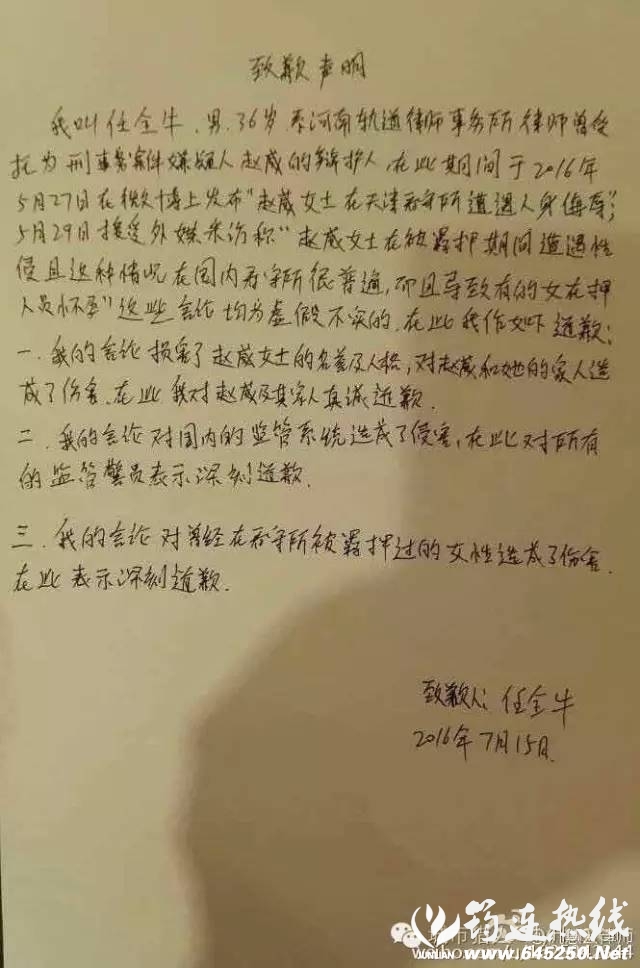 致歉声明
我叫任全牛、男、36岁系河南轨道律师事务所律师曾受
托为刑事案件嫌疑人赵威的辩护人,在此期间于2016年
5月27日在微博上发布“赵葳女士在天津看守所遭遇人身侮辱”;
5月29日接受外媒采访称“赵威女士在被羁押期间遭遇性
侵且这种情况在国内看守所很普通,而且导致有的女在押
人员怀孕”这些言论均为虚假不实的,在此我作如下道歉:
一、我的言论损害了赵威女士的名誉及人格,对赵葳和她的家人造
成了伤害.在此我对赵威及其家人真诚道歉.
二、我的言论对国内的监管系统造成了侵害,在此对所有
的监管警员表示深刻道歉.
三、我的言论对曾经在看守所被羁押过的女性造成了伤害.
在此表示深刻道歉.
致歉人:任全牛
2016年7月15日.
筠连热线
www.645250.Net